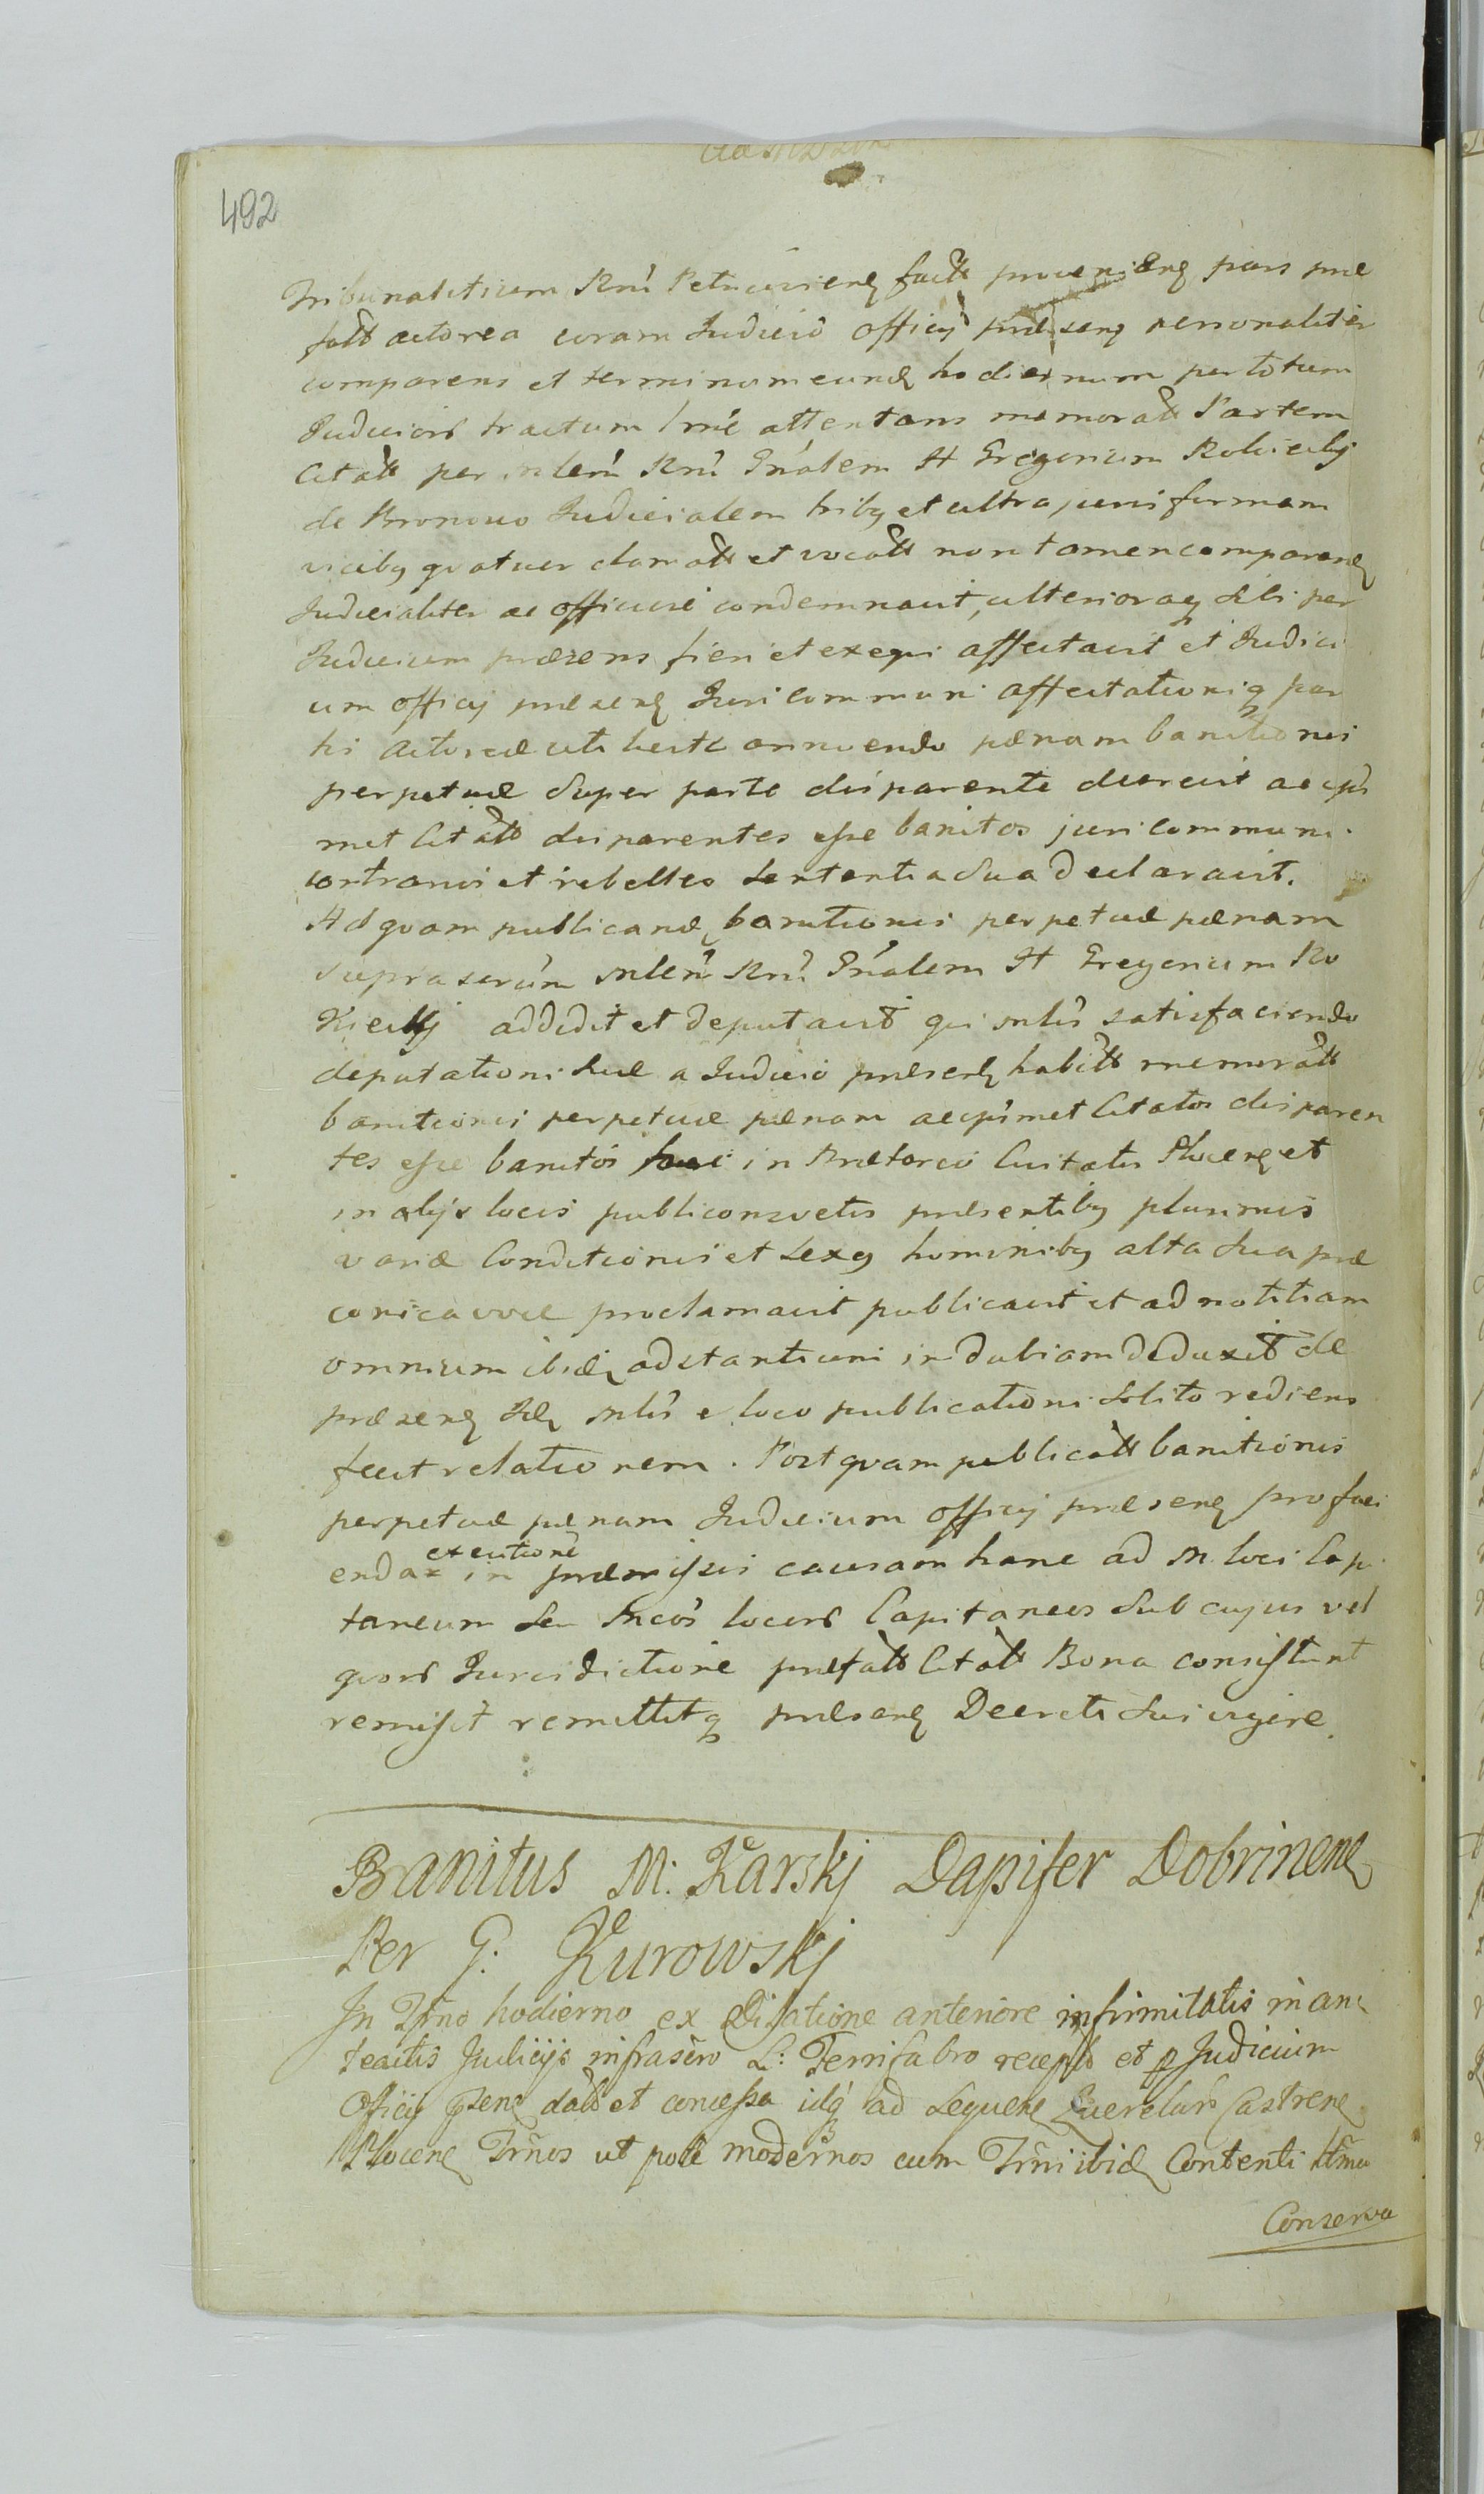 492
Tribunalitium Rnî Petricovienẽ factt provenienẽ pars præ
fatt actorea coram Judicio officij præsenẽ personaliter
comparens et terminum eundẽ hodiernum per totum
Judiciorũ tractum rné attentans memoratt Partem
Citatt per mlem Rnî Gnâlem H Gregorium Rokicky
de Bronowo Judicialem tribꝯ et ultra juris formam
vicibꝯ quatuor clamatt et vocatt non tamen comparenẽ
Judicialiter ac officiose condemnavit, ulterioraq sibi per
Judicium præsens fieri et exequi affectavit et Judici
um officij præsenẽ Juri communi affectationiq par
ti actoreæ uti justæ annuendo pænam banitionis
perpetuæ super parte disparente decrevit ac ipso
met Citatt disparentes esse banitos juri communi
contrarios et rebelles sententia sua declaravit.
Ad quam publicandẽ banitionis perpetuæ pænam
suprascrûm mlem Rnî Gnâlem H Gregorium Ro
kicky addidit et deputavit qui mlîs satisfaciendo
deputationi suæ a Judicio præsenẽ habitt memoratt
banitionis perpetuæ pænam ac ipsmet Citatos disparen
tes esse banitos in Prætorio Civitatis Plocenẽ et
in alijs locis publiconsvetis præsentibꝯ plurimis
variæ Conditionis et sexꝯ hominibꝯ alta sua præ
conica voce proclamavit publicavit et ad notitiam
omnium ibidẽ adstantium indubiam deduxit de
præsenẽ mlîs e loco publicationi solito rediens
fecit relationem. Post quam publicatt banitionis
perpetuæ pænam Judicium officij præsenẽ pro faci
enda executione in præmissis causam hanc ad M. loci Capi
taneum seu Mcos locorũ Capitaneos sub cujus vel
quorũ Jurisdictione præfatt Citatt Bona consistunt
remisit remittitq præsenẽ Decreti sui vigore.
Banitus M: Karskj Dapifer Dobrinenẽ
Per G: Kurowskj
In Trno hodierno ex Dilatione anteriore infirmitatis in an
teactis Judicijs infrascro L: Terrifabro recept et p Judicium
Officij psenẽ datt et concessa idq ad sequenẽ Querelarũ Castrenẽ
Plocenẽ Trnos ut pote modernos cum Trni ibidẽ Contenti
Conserva